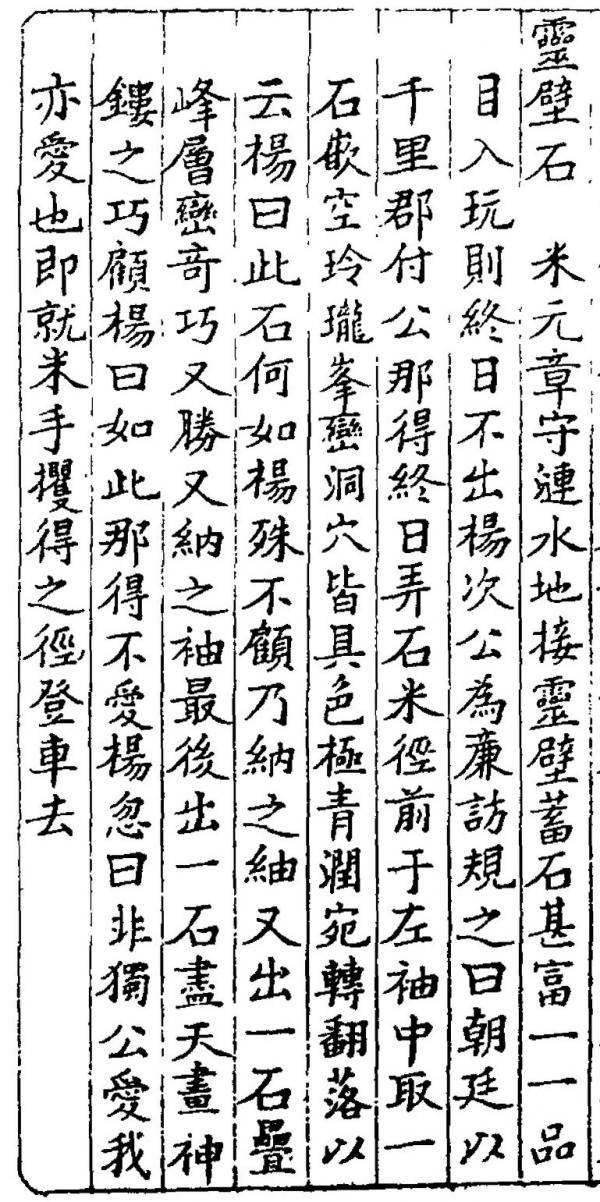 靈壁石　米元章守漣水地接靈壁蓄石甚富一一品
目入玩則終日不出楊次公為廉訪規之曰朝廷以
千里郡付公那得終日弄石米徑前于左袖中取一
石嵌空玲瓏峯巒洞穴皆具色極青潤宛轉翻落以
云楊曰此石何如楊殊不顧乃納之紬又出一石疊
峰層巒奇巧又勝又納之袖最後出一石盡天畫神
鏤之巧顧楊曰如此那得不愛楊忽曰非獨公愛我
亦愛也即就米手攫得之徑登車去